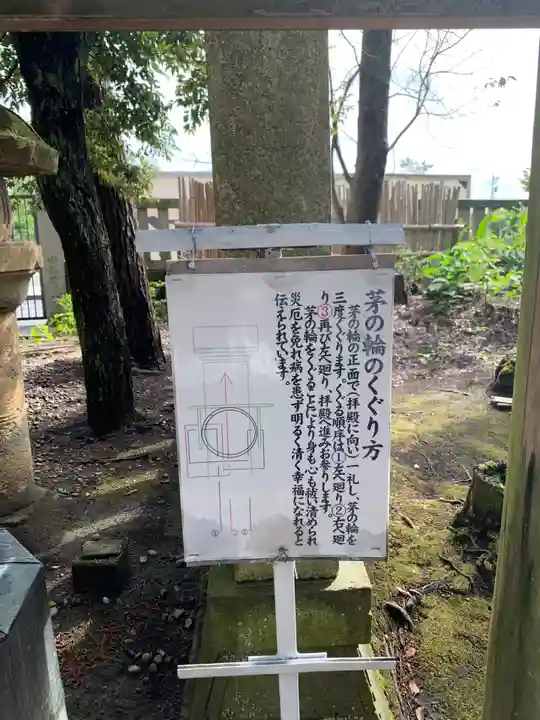 茅の輪のくぐり方
茅の輪の正面で(拝殿に向い)一礼し、茅の輪を
三度くぐります。くぐる順序は①左へ廻り②右へ廻
り③再び左へ廻り、拝殿へ進みお参りします。
茅の輪をくぐることにより身も心も祓い清められ
災厄を免れ病を患ず明るく清く幸福になれると
伝えられています。
① ② ③